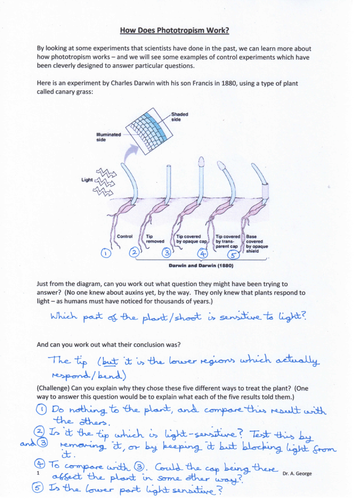 How Does Phototropism Work?
By looking at some experiments that scientists have done in the past, we can learn more about
how phototropism works – and we will see some examples of control experiments which have
been cleverly designed to answer particular questions.
Here is an experiment by Charles Darwin with his son Francis in 1880, using a type of plant
called canary grass:
Shaded
side
Illuminated
side
Light
Control
Tip
removed
Tip covered
by opaque cap
Tip covered
by trans-
parent cap
Base
covered
by opaque
shield
1 2 3 4 5
Darwin and Darwin (1880)
Just from the diagram, can you work out what question they might have been trying to
answer? (No one knew about auxins yet, by the way. They only knew that plants respond to
light – as humans must have noticed for thousands of years.)
Which part of the plant/shoot is sensitive to light?
And can you work out what their conclusion was?
The tip (but it is the lower regions which actually
respond/bend)
(Challenge) Can you explain why they chose these five different ways to treat the plant? (One
way to answer this question would be to explain what each of the five results told them.)
1 Do nothing to the plant, and compare this result with
the others.
2 Is it the tip which is light-sensitive? Test this by
and 3 removing it, or by keeping it but blocking light from
it.
4 To compare with 3. Could the cap being there
affect the plant in some other way?
5 Is the lower part light sensitive?
1
Dr. A. George